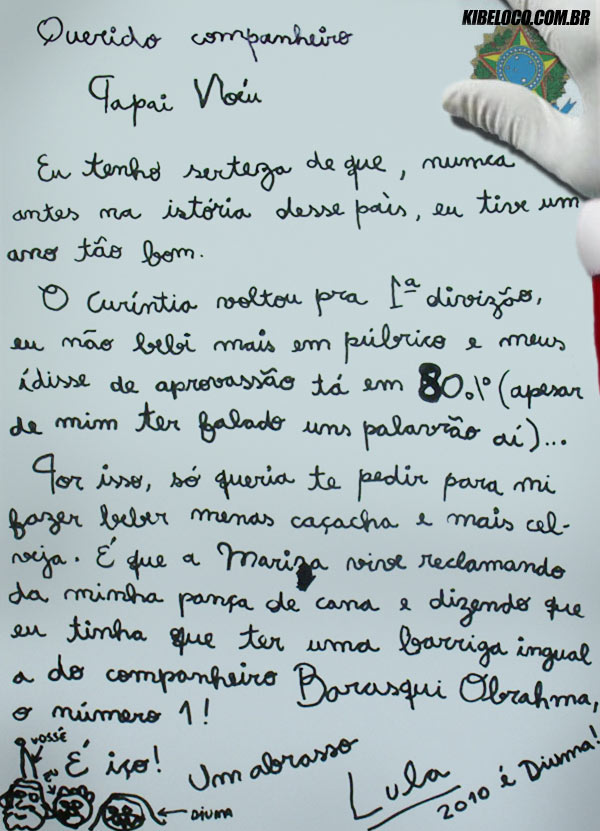 KIBELOCO.COM.BR
Querido companheiro
Papai Noéu
Eu tenho serteza de que, numca
antes na istória desse paìs, eu tive um
ano tão bom.
O Curíntia voltou pra 1ª divizão,
eu não bebi mais em púbrico e meus
ídisse de aprovassão tá em 80.1º (apesar
de mim ter falado uns palavrão aí)...
Por isso, só queria te pedir para mi
fazer beber menas caçacha e mais cel-
veja. É que a Mariza vive reclamando
da minha pança de cana e dizendo que
eu tinha que ter uma barriga ingual
a do companheiro Barasqui Obrahma,
o número 1!
É iço! Um abrasso
Lula
2010 é Diuma!
VOSSÊ
EU
DIUMA